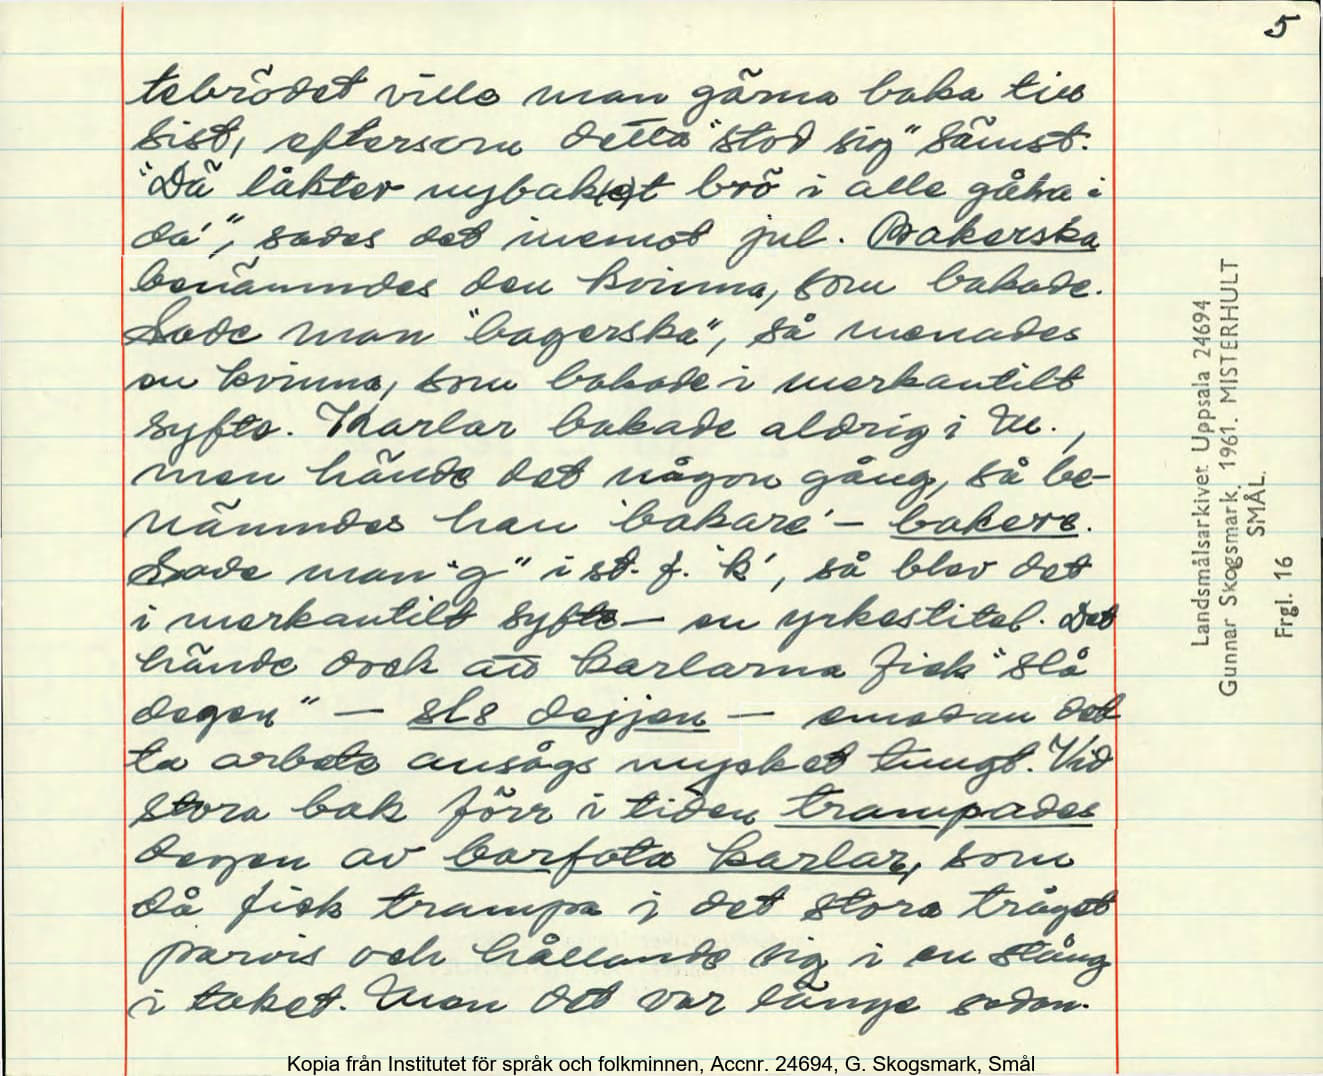 5
tebrödet ville man gärna baka till
sist, eftersom detta "stod sig" sämst.
"Dä låkter nybak(e)t brö i alle gåĺna i
da'", sades det inemot jul. Bakerska
benämndes den kvinna, som bakade.
Sade man "bagerska", så menades
en kvinna, som bakade i merkantilt
syfte. Karlar bakade aldrig i M.,
men hände det någon gång, så be-
nämndes han 'bakare' – bakere.
Sade man "g" i st. f. 'k', så blev det
i merkantilt syfte – en yrkestitel. Det
hände dock att karlarna fick "slå
degen" – sls dejjen – emedan det
ta arbete ansågs mycket tungt. Vid
stora bak förr i tiden trampades
degen av barfota karlar, som
då fick trampa i det stora tråget
parvis och hållande sig i en stång
i taket. Men det var länge sedan.
Landsmålsarkivet Uppsala 24694
Gunnar Skogsmark. 1961. MISTERHULT
SMÅL.
Frgl. 16
Kopia från Institutet för språk och folkminnen, Accnr. 24694, G. Skogsmark, Smål